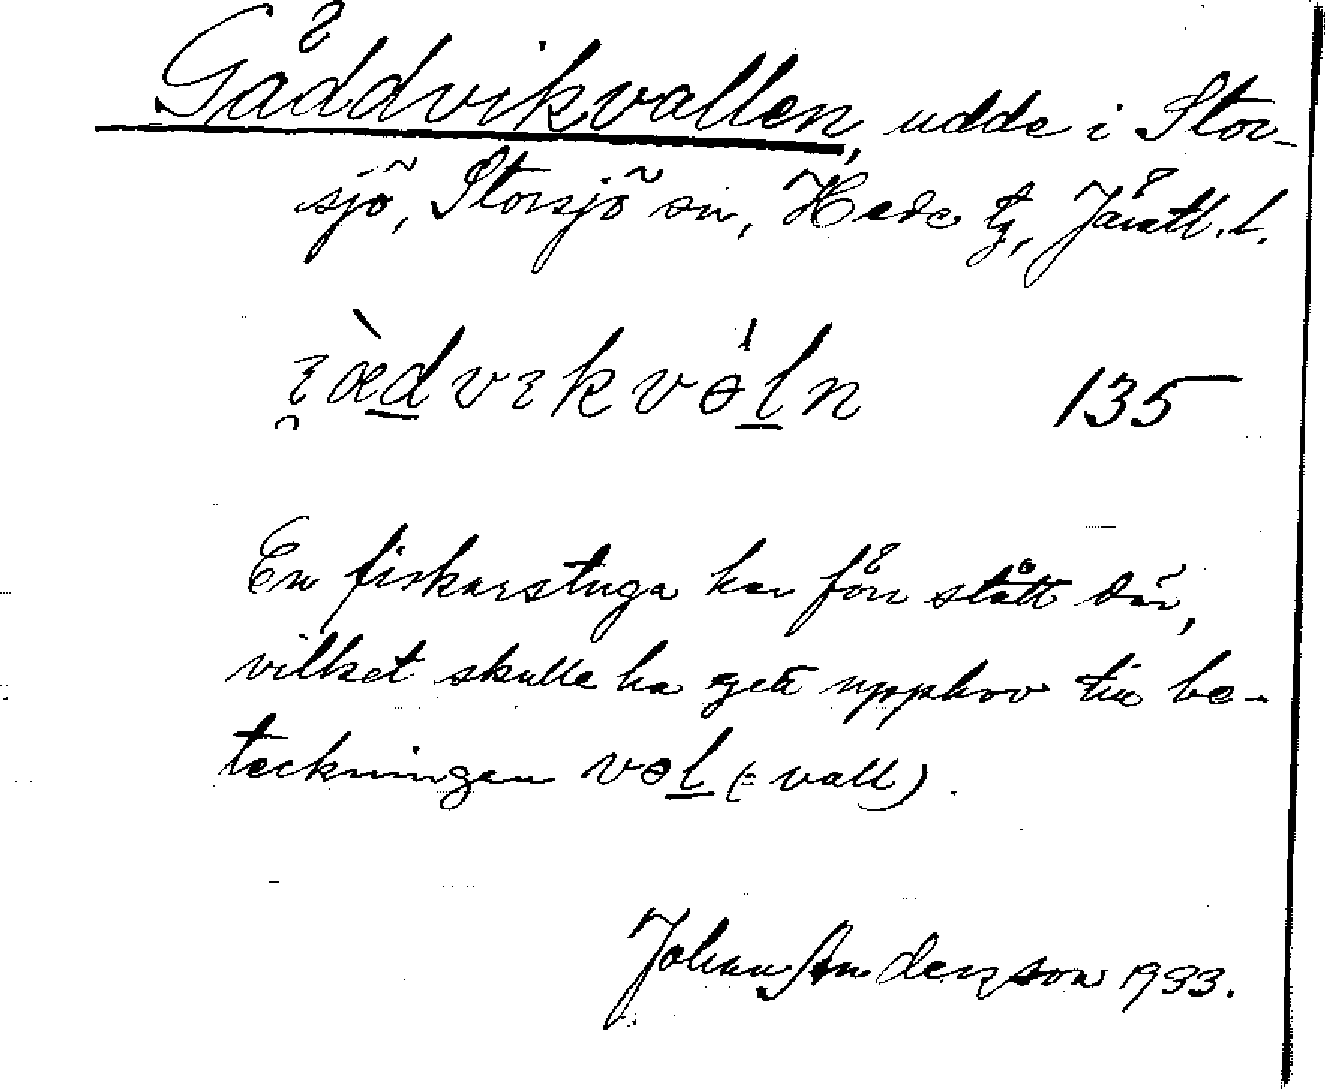 Gäddvikvallen, udde i Stor-
sjö, Storsjö sn, Hede tg, Jämtl. l.
135
En fiskarstuga har förr stått där,
vilket skulle ha gett upphov till be-
teckningen vəl (= vall).
Johan Anderzson 1933.